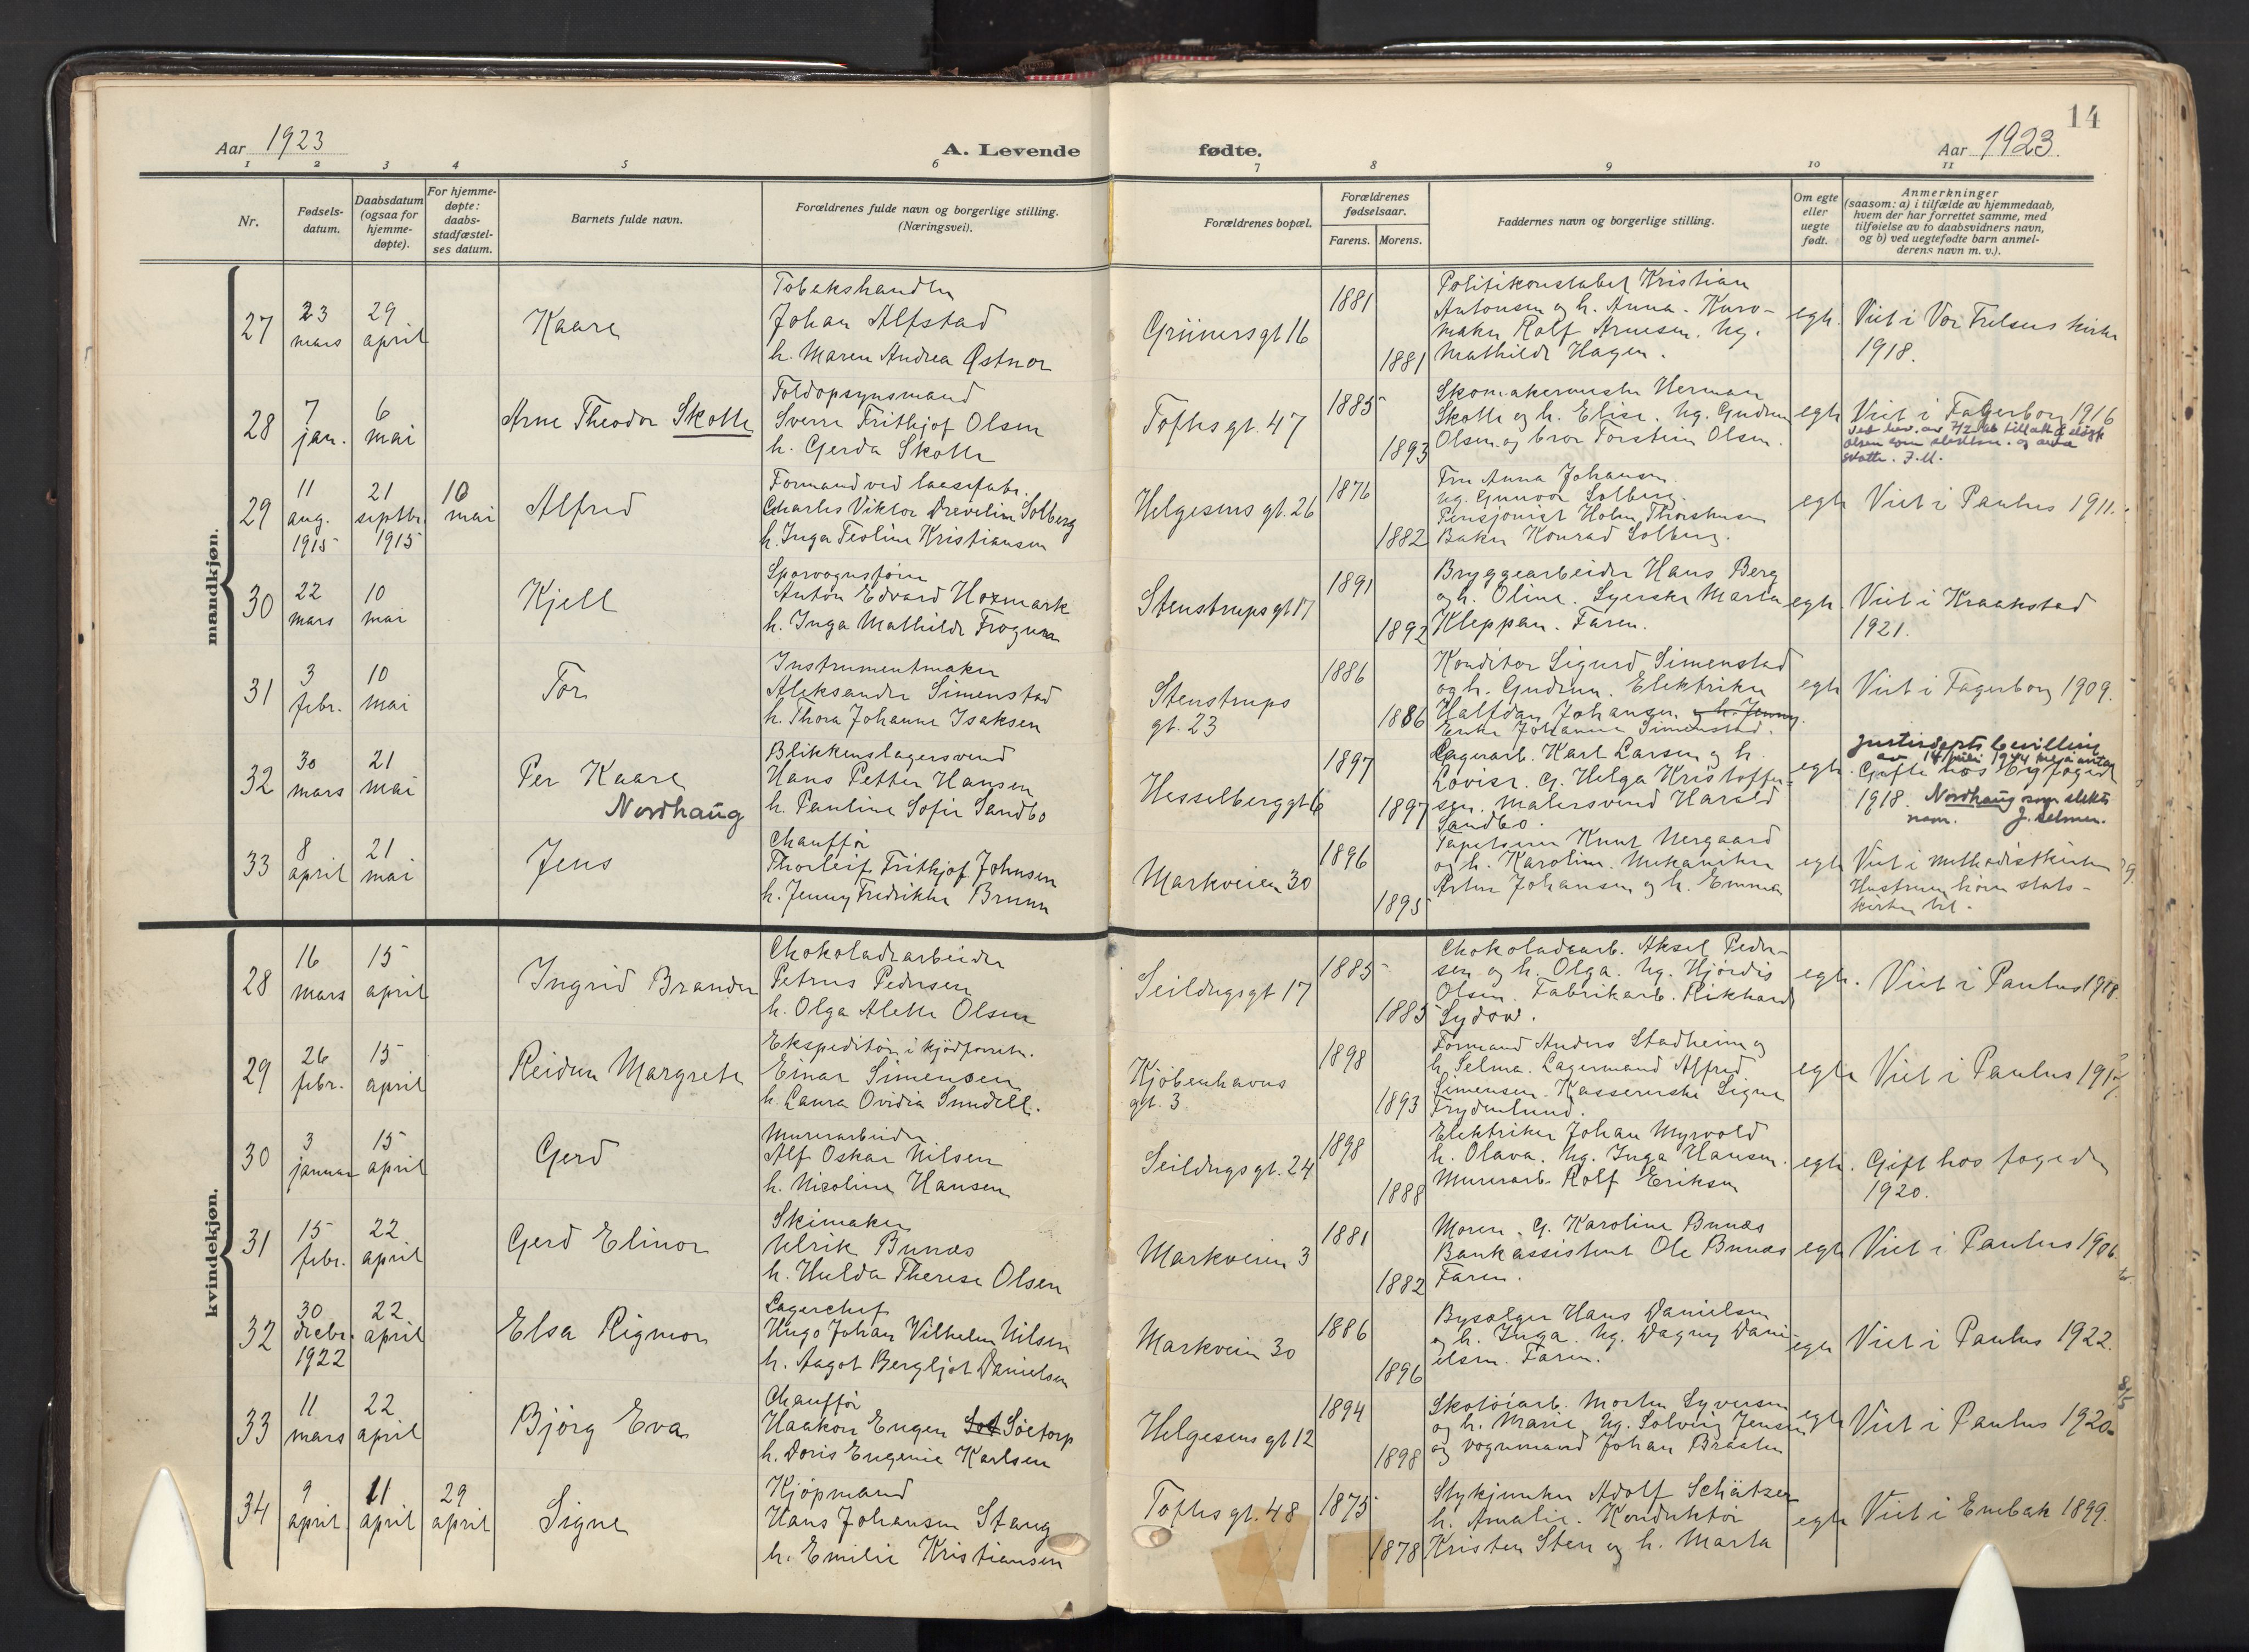 Aar 1923
A. Levende
fødte.
14
Aar 1923.
1 2 3 4 5 6 7 8 9 10 11
Nr.
Fødsels-
datum.
Daabsdatum
(ogsaa for
hjemme-
døpte).
For hjemme-
døpte:
daabs-
stadfæstel-
ses datum.
Barnets fulde navn.
Forældrenes fulde navn og borgerlige stilling.
(Næringsvei).
Forældrenes bopæl.
Forældrenes
fødselsaar.
Farens. Morens.
Faddernes navn og borgerlige stilling.
Om egte
eller
uegte
født.
Anmerkninger
(saasom: a) i tilfælde av hjemmedaab,
hvem der har forrettet samme, med
tilføielse av to daabsvidners navn,
og b) ved uegtefødte barn anmel-
derens navn m. v.).
mandkjøn.
27
23
mars
29
april
Kaare
Tobakshandler
Johan Alfstad
h. Maren Andrea Østnor
Grünersgt 16
1881
1881
Politikonstabel Kristian
Antonsen og h. Anna. Kurv-
maker Rolf Arnesen. Ug.
Mathilde Hagen.
egte.
Viet i Vor Frelsers kirke
1918.
28
7
jan.
6
mai
Arne Theodor Skotte
Toldopsynsmand
Sverre Frithjof Olsen
h. Gerda Skotte
Toftesgt. 47
1885
1893
Skomakermester Herman
Skotte og h. Elise. Ug. Gudrun
Olsen og bror Torstein Olsen.
egte
Viet i Fagerborg 1916
29
11
aug.
1915
21
septbr.
1915
10
mai
Alfred
Formand ved laasefabr.
Charles Viktor Drevelin Solberg
h. Inga Teoline Kristiansen
Helgesens gt. 26
1876
1882
Fru Anna Johansen
ug. Gunvor Solberg.
Pensjonist Holm Thorshusen
Baker Konrad Solberg.
egte
Viet i Paulus 1911.
30
22
mars
10
mai
Kjell
Sporvognsfører
Anton Edvard Hozmark
h. Inga Mathilde Frogner
Stenstrupsgt 17
1891
1892
Bryggearbeider Hans Berg
og h. Oline. Syerske Marta
Kleppan. Faren.
egte.
Viet i Kraakstad
1921.
31
3
febr.
10
mai
Tor
Instrumentmaker
Aleksander Simenstad
h. Thora Johanne Isaksen
Stenstrups
gt. 23
1886
1886
Konditor Sigurd Simenstad
og h. Gudrun. Elektriker
Halfdan Johansen og h. Jenny.
Enke Johanne Simenstad.
egte
Viet i Fagerborg 1909.
32
30
mars
21
mai
Per Kaare
Nordhaug
Blikkenslagersvend
Hans Petter Hansen
h. Pauline Sofie Sandbo
Hesselberggt 6
1897
1897
Lagerarb. Karl Larsen og h.
Lovise. G. Helga Kristoffer-
sen. Malersvend Harald
Sandbo.
egte.
Justisdepts bevilling
av 14 juli 1944
Gifte hos byfoged
1918. Nordhaug som slekts
navn.
33
8
april
21
mai
Jens
Chauffør
Thorleif Frithjof Johnsen
h. Jenny Fredrikke Bruun
Markveien 30
1896
1895
Tapetserer Knut Nergaard
og h. Karoline. Mekaniker
Artur Johansen og h. Emma
egte
Viet i methodistkirken
Hustruen hører stats-
kirken til.
kvindekjøn.
28
16
mars
15
april
Ingrid Brander
Chokoladearbeider
Petrus Pedersen
h. Olga Alette Olsen
Seildugsgt 17
1885
1885
Chokoladearb. Aksel Peder-
sen og h. Olga. Ug. Hjørdis
Olsen. Fabrikarb. Rikhard
Sydow.
egte.
Viet i Paulus 1918.
29
26
febr.
15
april
Reidun Margrete
Ekspeditør i kjødforretn.
Einar Simensen
h. Laura Ovidia Sundell.
Kjøbenhavns
gt. 3
1898
1893
Formand Anders Stadheim og
h. Selma. Lagermand Alfred
Simensen. Kassererske Signe
Frydenlund.
egte
Viet i Paulus
30
3
januar
15
april
Gerd
Murerarbeider
Alf Oskar Nilsen
h. Nicoline Hansen
Seildugsgt. 24
1898
1888
Elektriker Johan Myrvold
h. Olava. Ug. Inga Hansen.
Murerarb. Rolf Eriksen
egte.
Gift hos fogeden
1920.
31
15
febr.
22
april
Gerd Elinor
Skimaker
Ulrik Bunæs
h. Hulda Therese Olsen
Markveien 3
1881
1882
Moren. G. Karoline Bunæs
Bankassistent Ole Bunæs
Faren.
egte
Viet i Paulus 1906.
32
30
decbr.
1922
22
april
Elsa Rigmor
Lagerchef
Hugo Johan Vilhelm Nilsen
h. Aagot Bergljot Danielsen
Markveien 30
1886
1896
Bysælger Hans Danielsen
og h. Inga. Ug. Dagny Dani-
elsen. Faren.
egte
Viet i Paulus 1922.
33
11
mars
22
april
Bjørg Eva
Chauffør
Haakon Eugen Sot Søetorp
h. Doris Eugenie Karlsen
Helgesens gt 12
1894
1898
Skotøiarb. Morten Syversen
og h. Marie. Ug. Solveig Jensen
og vognmand Johan Bråsten
egte
Viet i Paulus 1920.
8/5
34
9
april
11
april
29
april
Signe
Kjøpmand
Hans Johansen Stang
h. Emilie Kristiansen
Toftesgt. 48
1875
1878
Stykjunker Adolf Schätzer
h. Amalie. Konduktør
Kristen Sten og h. Marta
egte
Viet i Enebak 1899.